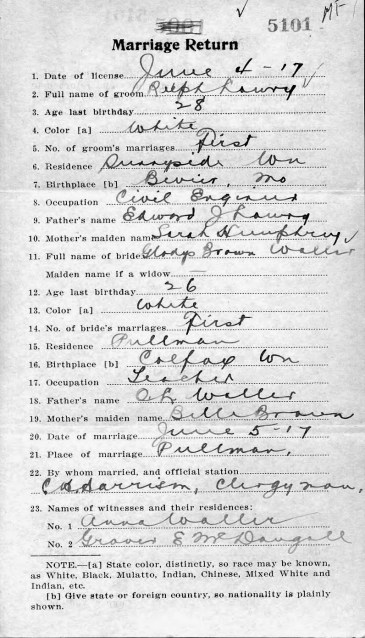 5101 MF
Marriage Return
1. Date of license June 4-17
2. Full name of groom Ralph Lowry
3. Age last birthday 28
4. Color [a] White
5. No. of groom's marriages First
6. Residence Sunnyside Wn
7. Birthplace [b] Bevier, Mo
8. Occupation Civil Engineer
9. Father's name Edward J Lowry
10. Mother's maiden name Sarah Humphrey
11. Full name of bride Gladys Brown Waller
Maiden name if a widow —
12. Age last birthday 26
13. Color [a] White
14. No. of bride's marriages First
15. Residence Pullman
16. Birthplace [b] Colfax Wn
17. Occupation Teacher
18. Father's name Waller
19. Mother's maiden name Belle Brown
20. Date of marriage June 5-17
21. Place of marriage Pullman,
22. By whom married, and official station
Harrison, Clergyman,
23. Names of witnesses and their residences:
No. 1 Anna Waller
No. 2 Grover E McDougall
NOTE.—[a] State color, distinctly, so race may be known,
as White, Black, Mulatto, Indian, Chinese, Mixed White and
Indian, etc.
[b] Give state or foreign country, so nationality is plainly
shown.